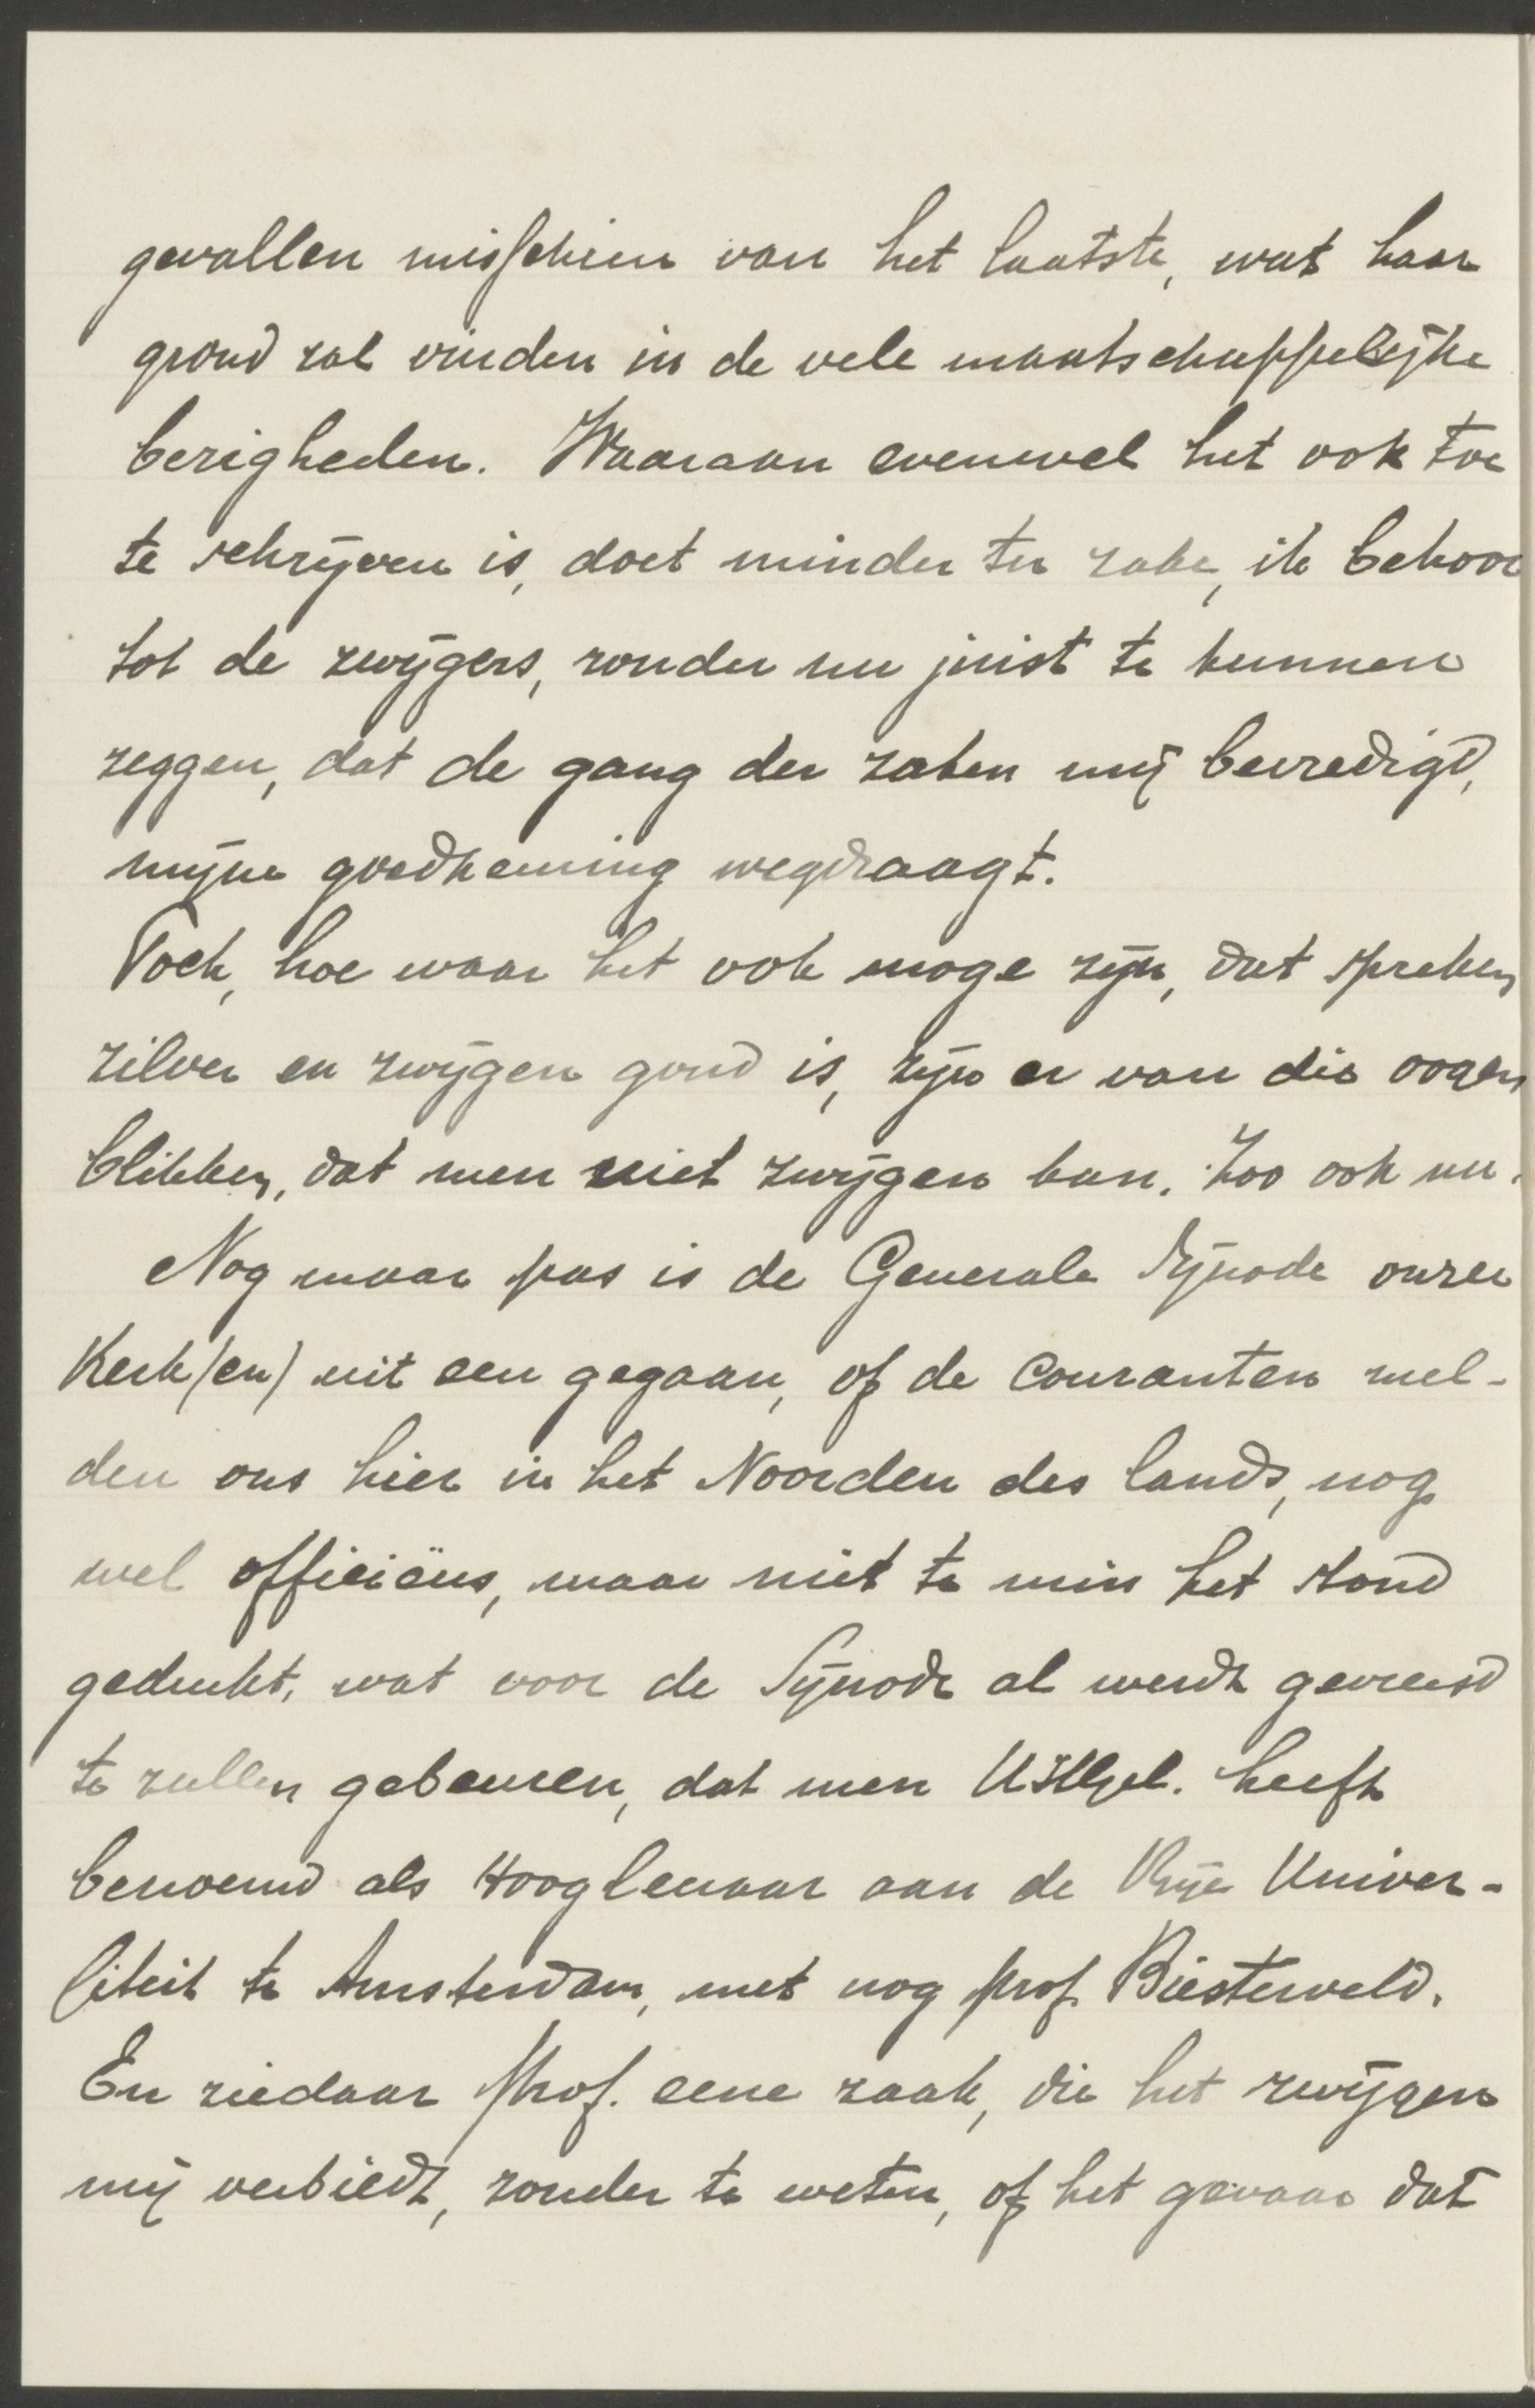 gevallen misschien van het laatste, wat haar
grond zal vinden in de vele maatschappelijke
bezigheden. Waaraan evenwel het ook toe
te schrijven is, doet minder ter zake, ik behoor
tot de zwijgers, zonder nu juist te kunnen
zeggen, dat de gang der zaken mij bevredigd,
mijne goedkeuring wegdraagt.
Toch, hoe waar het ook moge zijn, dat spreken
zilver en zwijgen goud is, zijn er van die oogen
blikken, dat men niet zwijgen kan. Zoo ook nu.
Nog maar pas is de Generale Synode onzer
Kerk(en) uit een gegaan, of de Couranten mel-
den ons hier in het Noorden des lands, nog
wel officiëus, maar niet te min het stond
gedrukt, wat voor de Synode al werdt gevreesd
te zullen gebeuren, dat men UHGel. heeft
benoemd als Hoogleraar aan de Vrije Univer-
siteit te Amsterdam, met nog prof. Biesterveld.
En ziedaar Prof. eene zaak, die het zwijgen
mij verbiedt, zonder te weten, of het gevaar dat